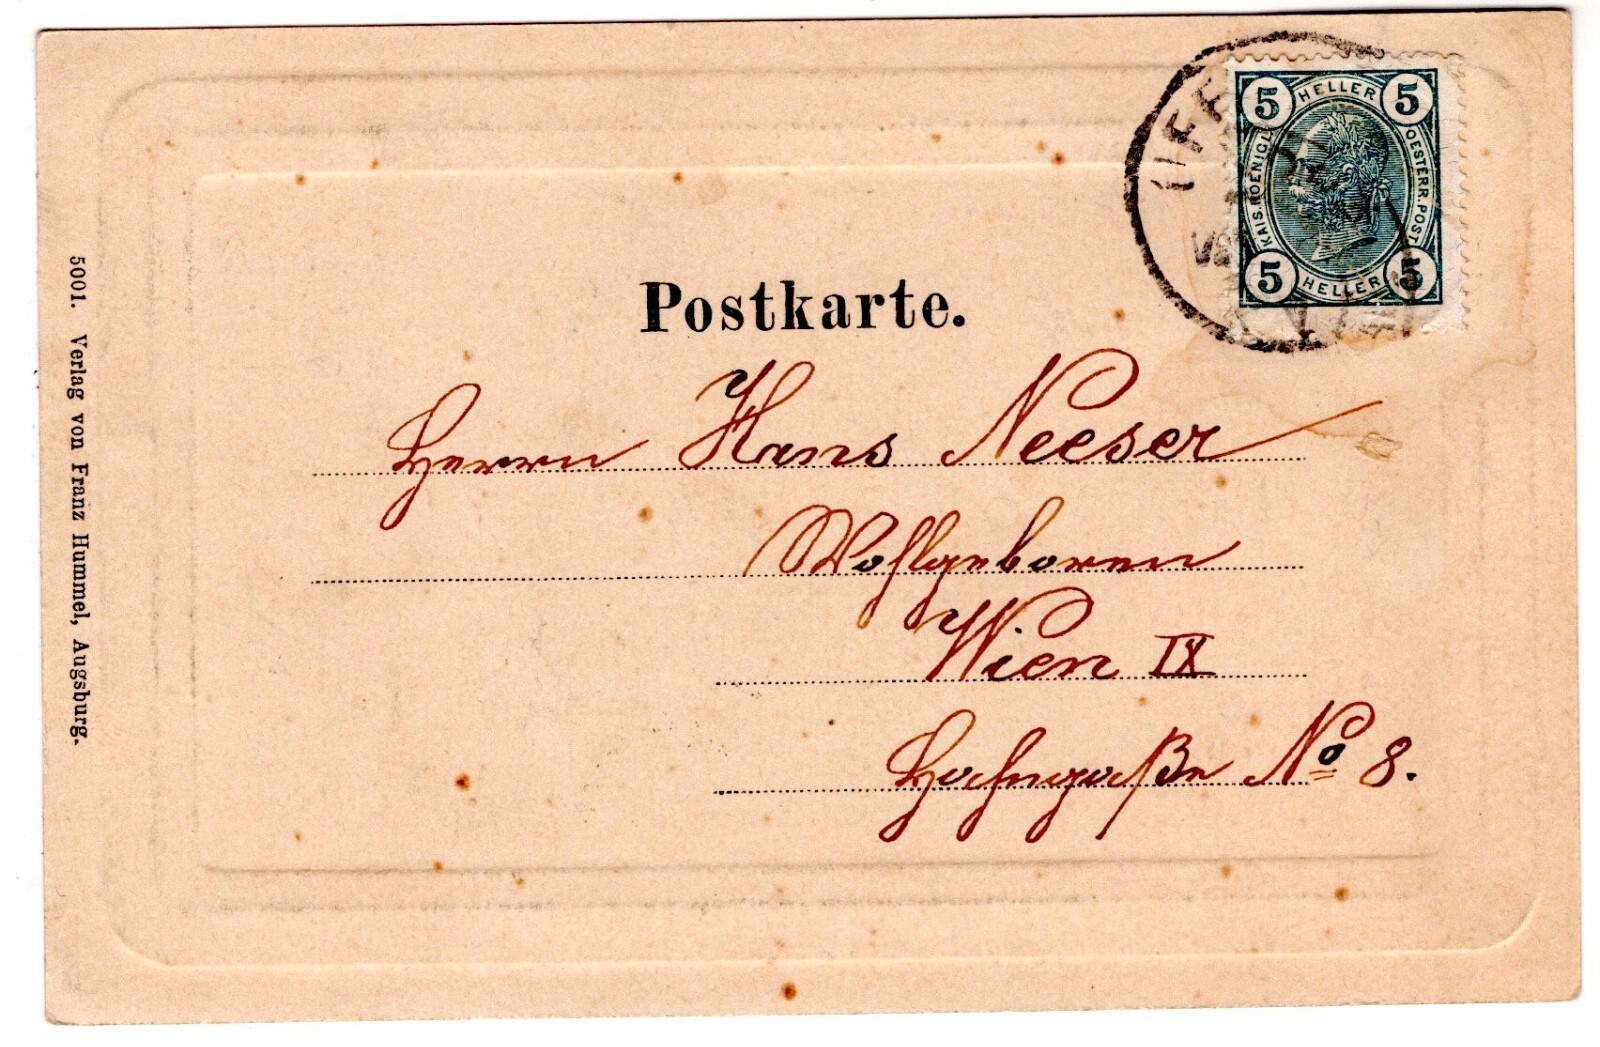 5 HELLER 5
KAIS. KOENIGL. OESTERR. POST
5 HELLER 5
Postkarte.
Herrn Hans Neeser
Wohlgeboren
Wien IX
Hahngaße No 8.
5001. Verlag von Franz Hummel, Augsburg.